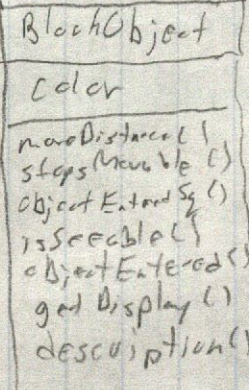 BlockObject
Color
moveDistance()
stopsMovable()
objectEnteredSq()
isSeeable()
objectEntered()
getDisplay()
description()